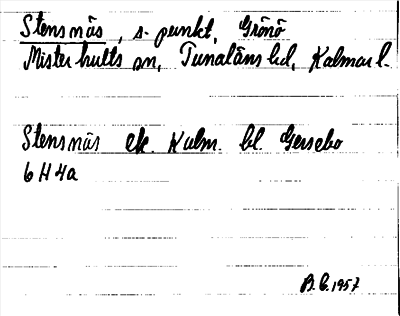 Stensnäs, s. punkt, Grönö
Misterhults sn, Tunaläns hd, Kalmar l.
Stensnäs ek. Kalm. bl. Gersebo
6 H 4a
B.C. 1957